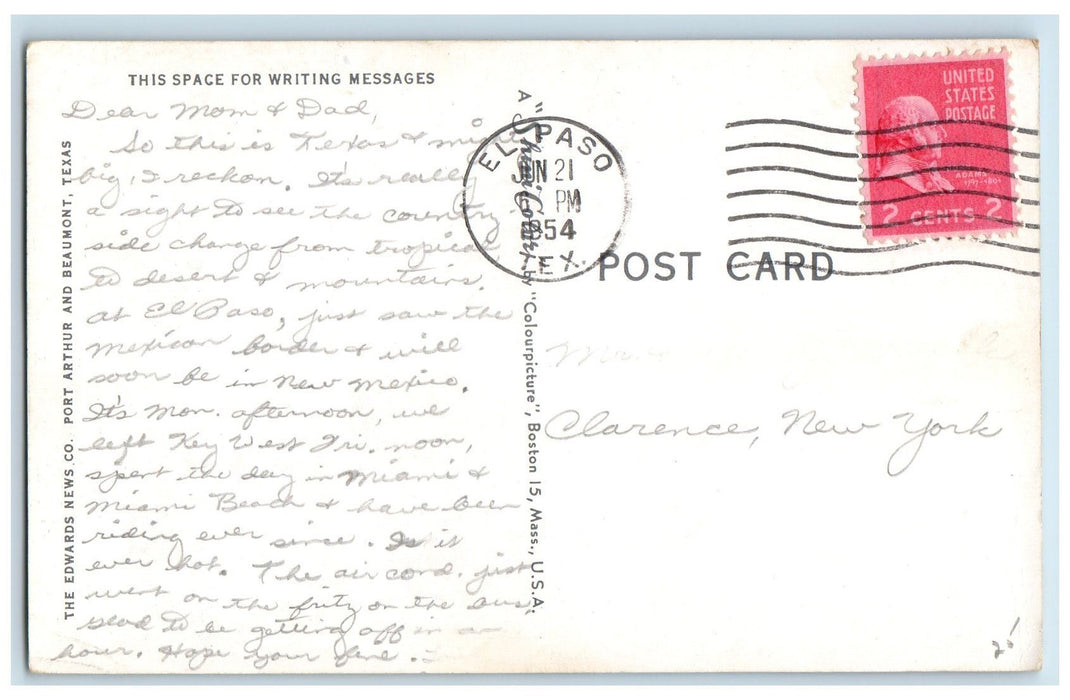 THIS SPACE FOR WRITING MESSAGES
Dear Mom & Dad,
So this is Texas & might
big, I reckon. It's really
a sight to see the country
side change from tropical
to desert & mountains.
at El Paso, just saw the
Mexican border & will
soon be in New Mexico.
It's Mon. afternoon, we
left Key West Fri. noon,
spent the day in Miami &
Miami Beach & have been
riding ever since. Is it
ever hot. The air cond. just
went on the fritz on the bus
glad to be getting off in an
hour. Hope your fine.
THE EDWARDS NEWS CO. PORT ARTHUR AND BEAUMONT, TEXAS
A "ShiniColor" by "Colourpicture", Boston 15, Mass., U.S.A.
EL PASO
JUN 21
PM
1954
TEX.
UNITED
STATES
POSTAGE
ADAMS
1797-1801
2 CENTS 2
POST CARD
Mr.
Clarence, New York